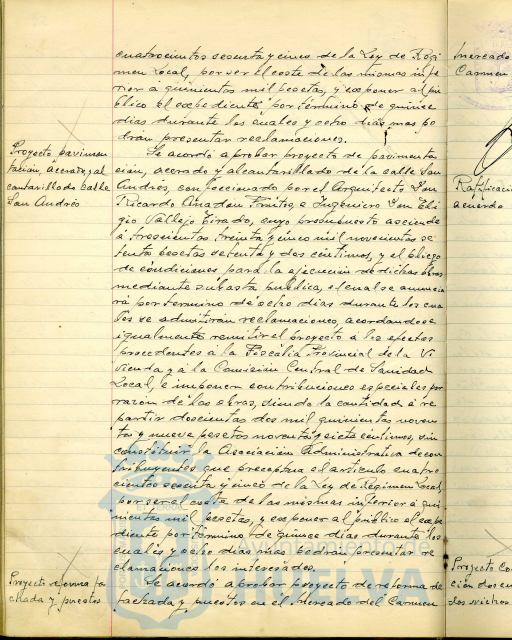 cuatrocientos sesenta y cinco de la Ley de Regi
men Local, por ser el coste de las mismas infe
rior a quinientas mil pesetas, y exponer al pú
blico el expediente por término de quince
dias durante los cuales y ocho dias mas po
drán presentar reclamaciones.
Proyecto pavimen
tación, acerado y al
cantarillado calle
San Andrés
Se acordo aprobar proyecto de pavimenta
ción, acerado y alcantarillado de la calle San
Andrés, confeccionado por el Arquitecto Don
Ricardo Anadón Frutos e Ingeniero Don Eli
gio Vallejo Tirado, cuyo presupuesto asciende
a trescientas treinta y cinco mil novecientas se
tenta pesetas setenta y dos centimos, y el pliego
de condiciones para la ejecución de dichas obras
mediante subasta pública, el cual se anuncia
rá por termino de ocho dias durante los cua
les se admitirán reclamaciones, acordandose
igualmente remitir el proyecto a los efectos
procedentes a la Fiscalia Provincial de la Vi
vienda y a la Comisión Central de Sanidad
Local, e imponer contribuciones especiales por
razón de las obras, siendo la cantidad a re
partir doscientas dos mil quinientas noven
ta y nueve pesetas noventa y siete centimos, sin
constituir la Asociación Administrativa de con
tribuyentes que preceptua el articulo cuatro
cientos sesenta y cinco de la Ley de Regimen Local
por ser el coste de las mismas inferior a qui
nientas mil pesetas, y exponer al público el expe
diente por término de quince dias durante los
cuales y ocho dias más podrán presentar re
clamaciones los interesados.
Proyecto reforma fa
chada y puestos
Se acordó aprobar proyecto de reforma de
fachada y puestos en el Mercado del Carmen
Mercado
Carmen
Ratificación
acuerdo
Proyecto
ción
Ayuntamiento
HUELVA